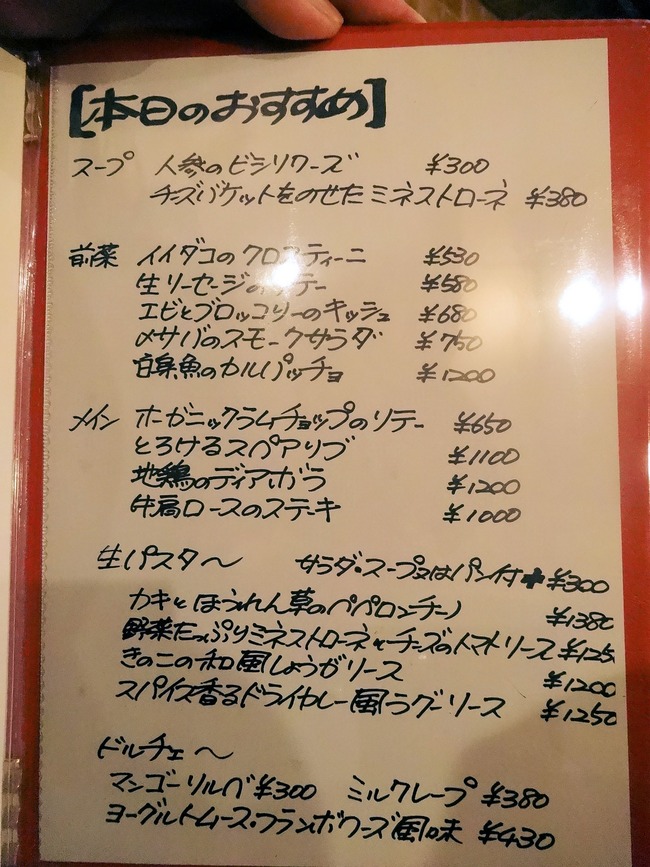 [本日のおすすめ]
スープ 人参のビシソワーズ ¥300
チーズバケットをのせたミネストローネ ¥380
前菜 イイダコのクロスティーニ ¥530
生ソーセージのソテー ¥580
エビとブロッコリーのキッシュ ¥680
〆サバのスモークサラダ ¥750
白身魚のカルパッチョ ¥1200
メイン オーガニックラムチョップのソテー ¥650
とろけるスペアリブ ¥1100
地鶏のディアボラ ¥1200
牛肩ロースのステーキ ¥1000
生パスタ〜 サラダ・スープ又はパン付+¥300
カキとほうれん草のペペロンチーノ ¥1380
野菜たっぷりミネストローネとチーズのトマトソース ¥125
きのこの和風しょうがソース ¥1200
スパイス香るドライカレー風ラグーソース ¥1250
ドルチェ〜
マンゴーソルベ ¥300 ミルクレープ ¥380
ヨーグルトムース・フランボワーズ風味 ¥430